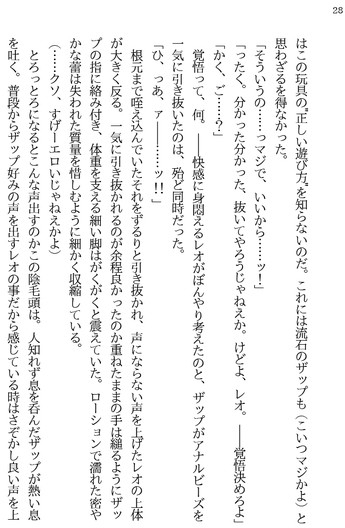 28
はこの玩具の〝正しい遊び方〟を知らないのだ。これには流石のザップも（こいつマジかよ）と
思わざるを得なかった。
「そういうの……っマジで、いいから……ッ！」
「ったく。分かった分かった、抜いてやろうじゃねえか。けどよ、レオ。――覚悟決めろよ」
「かく、ご……？」
覚悟って、何。――快感に身悶えるレオがぼんやり考えたのと、ザップがアナルビーズを
一気に引き抜いたのは、殆ど同時だった。
「ひ、っあ、ァ――……ッ！！」
根元まで咥え込んでいたそれをずるりと引き抜かれ、声にならない声を上げたレオの上体
が大きく反る。一気に引き抜かれるのが余程良かったのか重ねたままの手は縋るようにザッ
プの指に絡み付き、体重を支える細い脚はがくがくと震えていた。ローションで濡れた密や
かな蕾は失われた質量を惜しむように細かく収縮している。
（……クソ、すげーエロいじゃねえかよ）
とろっとろになるとこんな声出すのかこの陰毛頭は。人知れず息を呑んだザップが熱い息
を吐く。普段からザップ好みの声を出すレオの事だから感じている時はさぞかし良い声を上